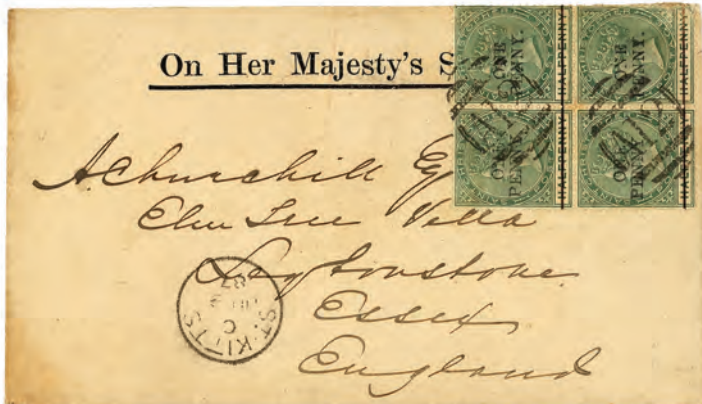 On Her Majesty's S
ONE PENNY.
HALFPENNY
ONE PENNY.
HALFPENNY
ONE PENNY.
HALFPENNY
ONE PENNY.
HALFPENNY
A12
A12
A Churchill Esq
Elm Tree Villa
Leytonstone
Essex
England
ST. KITTS
C
87